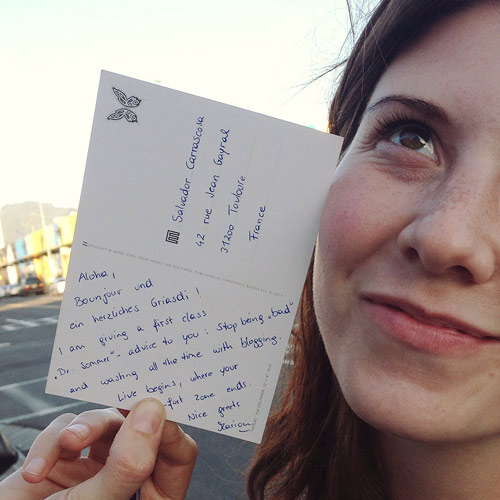 Aloha,
Bounjour und
ein herzliches Griasdi!
I am giving a first class
"Dr. Sommer"- advice to you: Stop being "bad"
and wasting all the time with blogging.
Live begins, where your
fort zone ends.
Nice greets
Marion
Salvador Carrascosa
42 rue Jean Gayral
31200 Toulouse
France